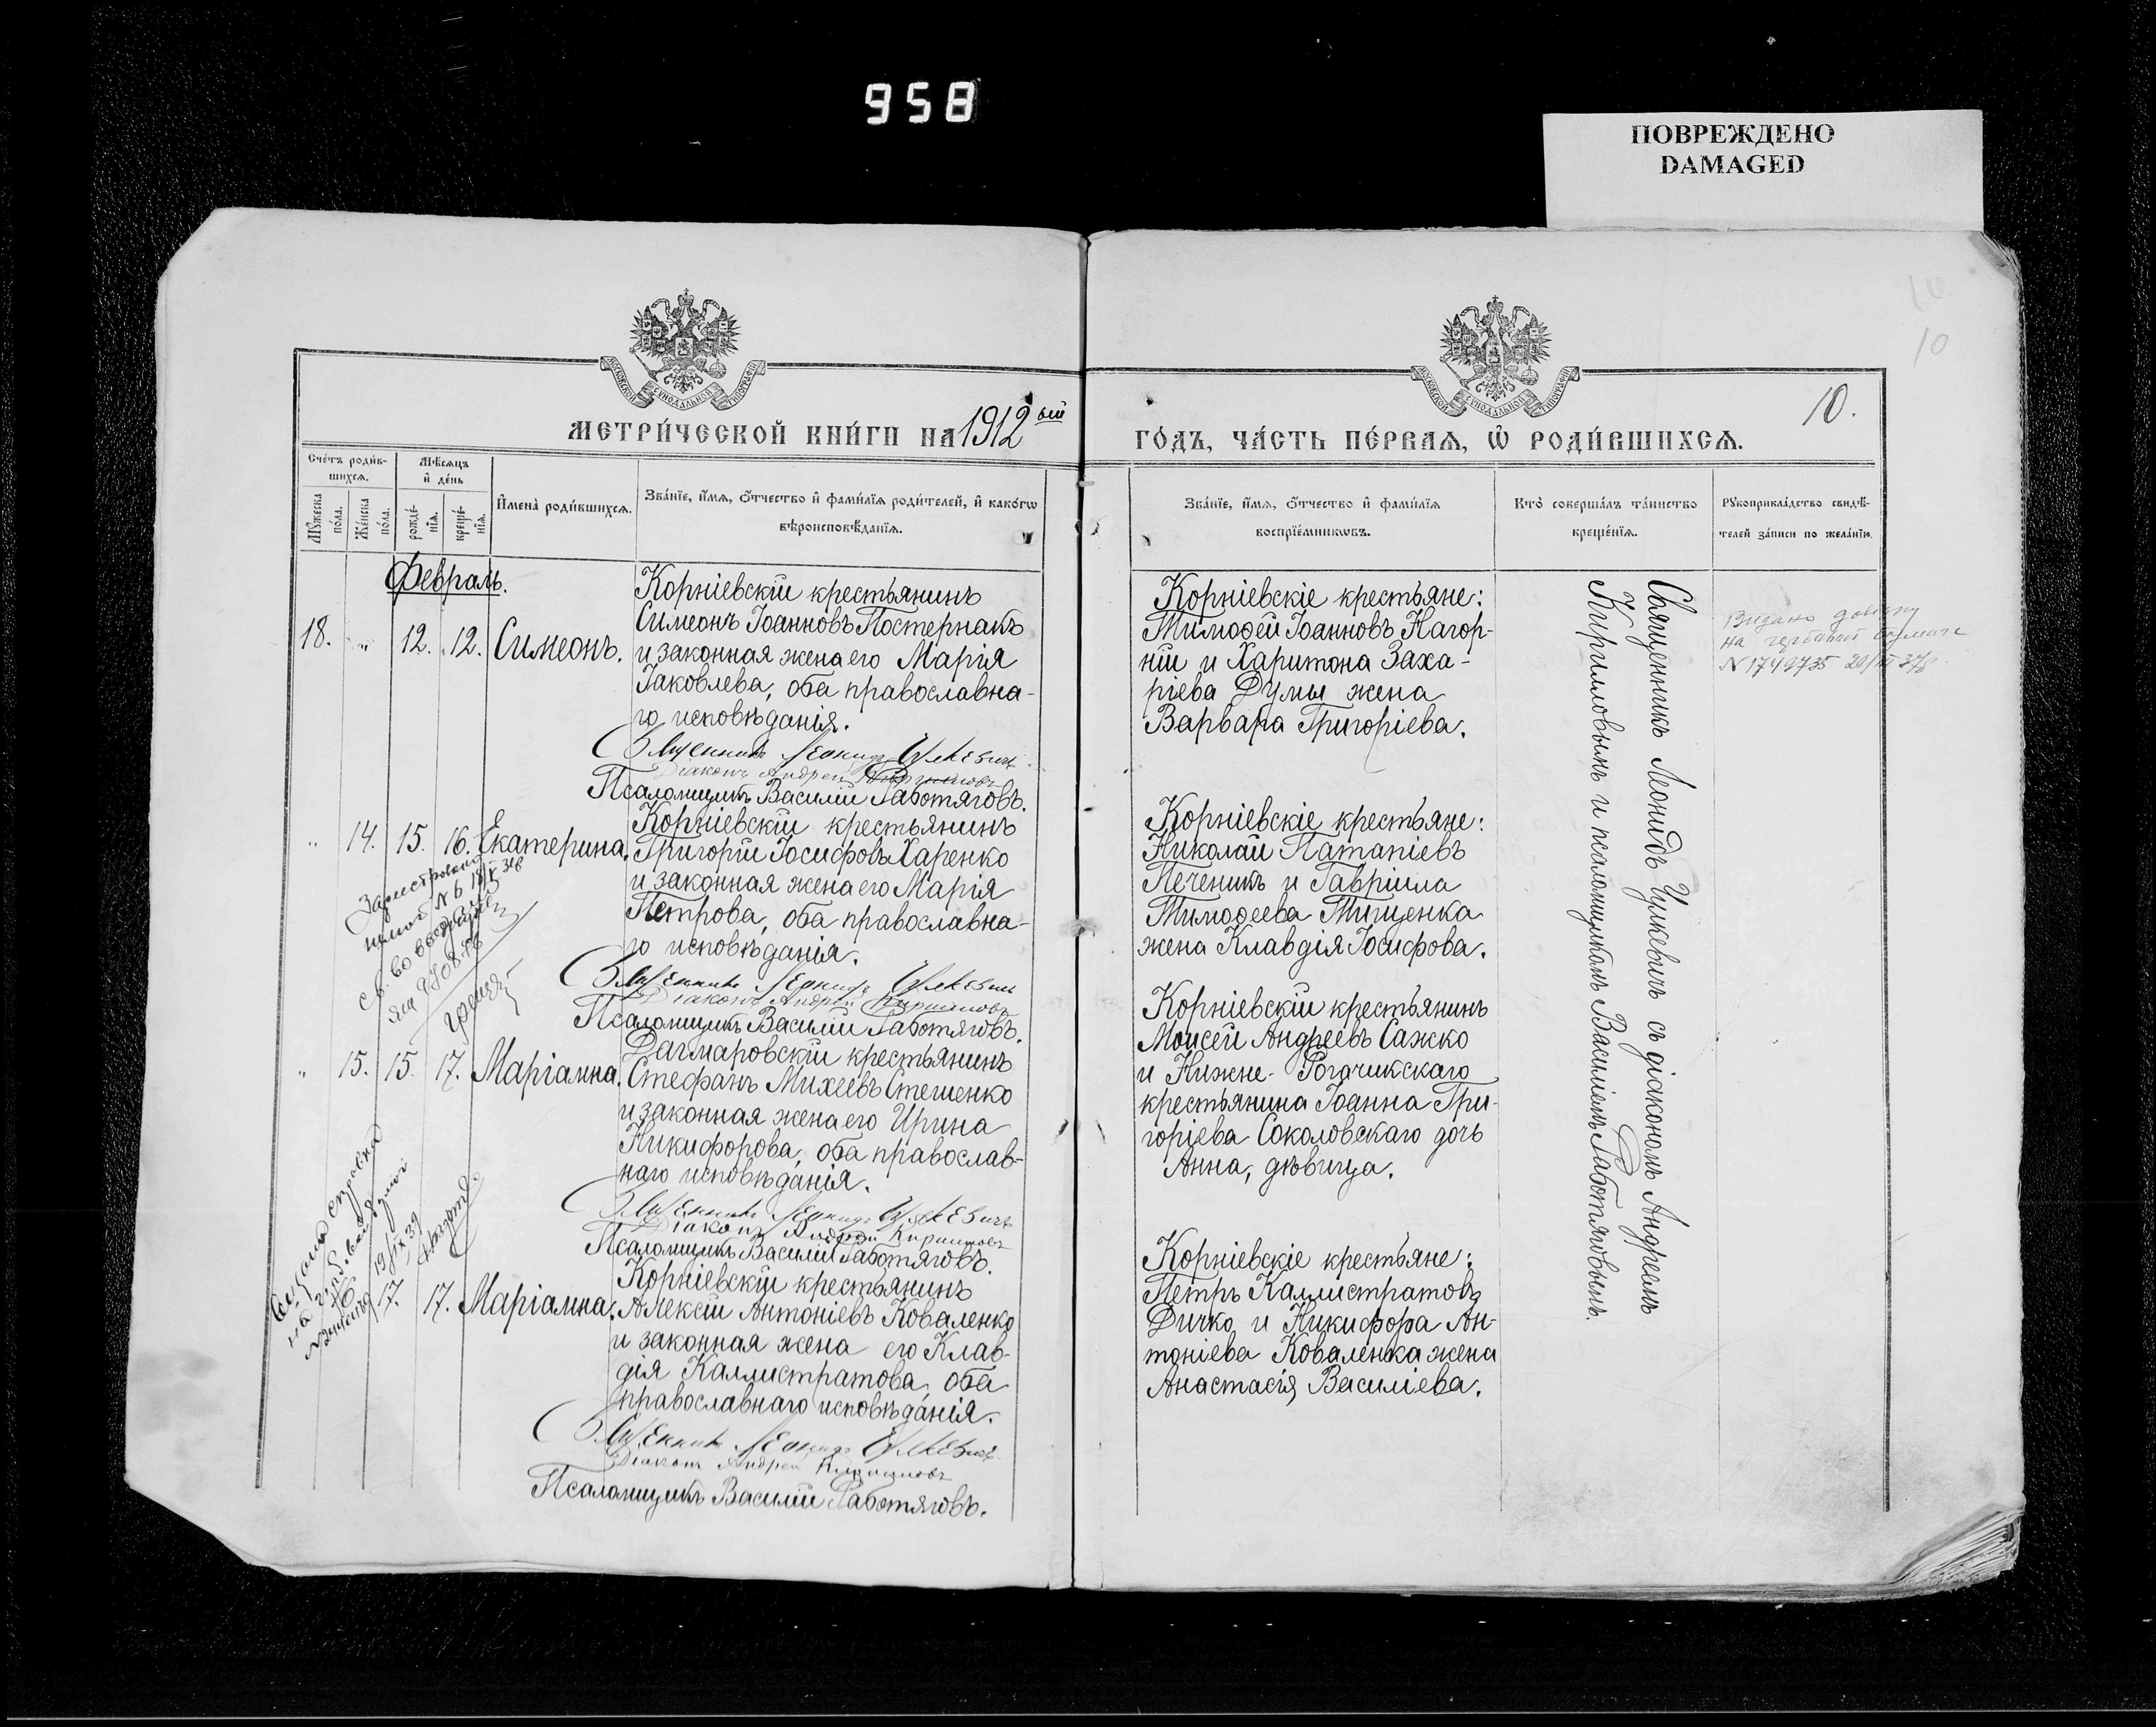 958
ПОВРЕЖДЕНО
DAMAGED
10
10
10.
МОСКОВСКОЙ СѴНОДАЛЬНОЙ ТИПОГРАФІИ
МОСКОВСКОЙ СѴНОДАЛЬНОЙ ТИПОГРАФІИ
МЕТРИ́ЧЕСКОЙ КНИ́ГИ НА 1912ый
ГО́ДЪ, ЧА́СТЬ ПЕ́РВАѦ, Ѡ҆ РОДИ́ВШИХСѦ.
Сче́тъ роди́в-
шихсѧ.
Мꙋ́жеска
по́ла.
Же́нска
по́ла.
Мѣ́сѧцъ
и҆ де́нь
рожде́-
нїѧ.
креще́-
нїѧ.
И҆мена̀ роди́вшихсѧ.
Зва́нїе, и҆́мѧ, ѻ҆́тчество и҆ фами́лїѧ роди́телей, и҆ како́гѡ
вѣроисповѣ́данїѧ.
Зва́нїе, и҆́мѧ, ѻ҆́тчество и҆ фами́лїѧ
воспрїе́мникѡвъ.
Кто̀ соверша́лъ та́инство
креще́нїѧ.
Рꙋкоприкла́дство свидѣ́-
телей за́писи по жела́нїю.
Февраль.
18. " 12. 12. Симеонъ.
Корніевскій крестьянинъ
Симеонъ Іоанновъ Постернакъ
и законная жена его Марія
Іаковлева, оба православна-
го исповѣданія.
Священникъ Леонидъ Цулкевичъ
Діаконъ Андрей Кирилловъ
Псаломщикъ Василій Работяговъ.
Корніевскіе крестьяне:
Тимоѳей Іоанновъ Нагор-
ній и Харитона Заха-
ріева Думы жена
Варвара Григоріева.
Видано довідку
на гербовій бумазі
N 1749735
" 14. 15. 16. Екатерина.
Корніевскій крестьянинъ
Григорій Іосифовъ Харенко
и законная жена его Марія
Петрова, оба православна-
го исповѣданія.
Священникъ Леонидъ Цулкевичъ
Діаконъ Андрей Кирилловъ
Псаломщикъ Василій Работяговъ.
Корніевскіе крестьяне:
Николай Патапіевъ
Печеникъ и Гавріила
Тимоѳеева Тищенка
жена Клавдія Іосифова.
" 15. 15. 17. Маріамна.
Дагмаровскій крестьянинъ
Стефанъ Михеевъ Стешенко
и законная жена его Ирина
Никифорова, оба православ-
наго исповѣданія.
Священникъ Леонидъ Цулкевичъ
Діаконъ Андрей Кирилловъ
Псаломщикъ Василій Работяговъ.
Корніевскій крестьянинъ
Моисей Андреевъ Сажко
и Нижне-Рогачикскаго
крестьянина Іоанна Гри-
горіева Соколовскаго дочь
Анна, дѣвица.
16. 17. 17. Маріамна.
Корніевскій крестьянинъ
Алексій Антоніевъ Коваленко
и законная жена его Клав-
дія Каллистратова, оба
православнаго исповѣданія.
Священникъ Леонидъ Цулкевичъ
Діаконъ Андрей Кирилловъ
Псаломщикъ Василій Работяговъ.
Корніевскіе крестьяне:
Петръ Каллистратовъ
Дичко и Никифора Ан-
тоніева Коваленка жена
Анастасія Василіева.
Священникъ Леонидъ Цулкевичъ съ діакономъ Андреемъ
Кирилловымъ и псаломщикомъ Василіемъ Работяговымъ.